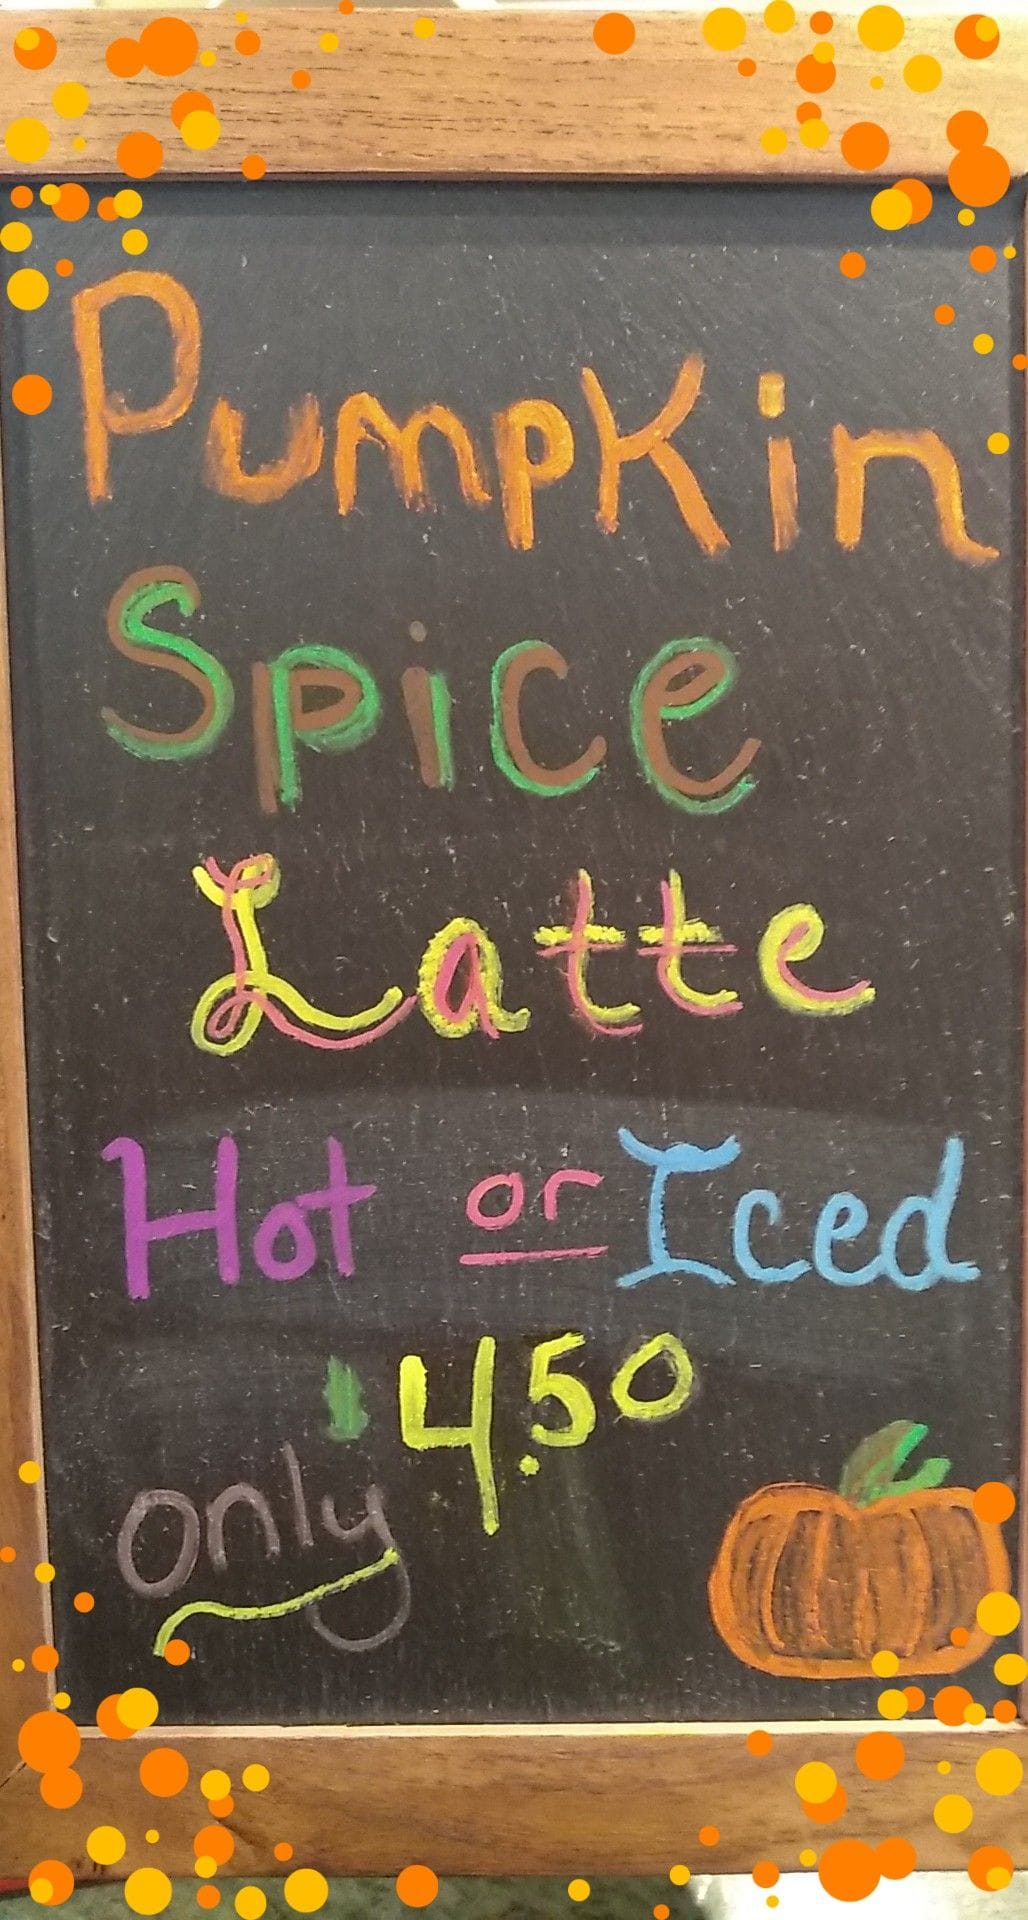 Pumpkin
Spice
Latte
Hot or Iced
only 4.50